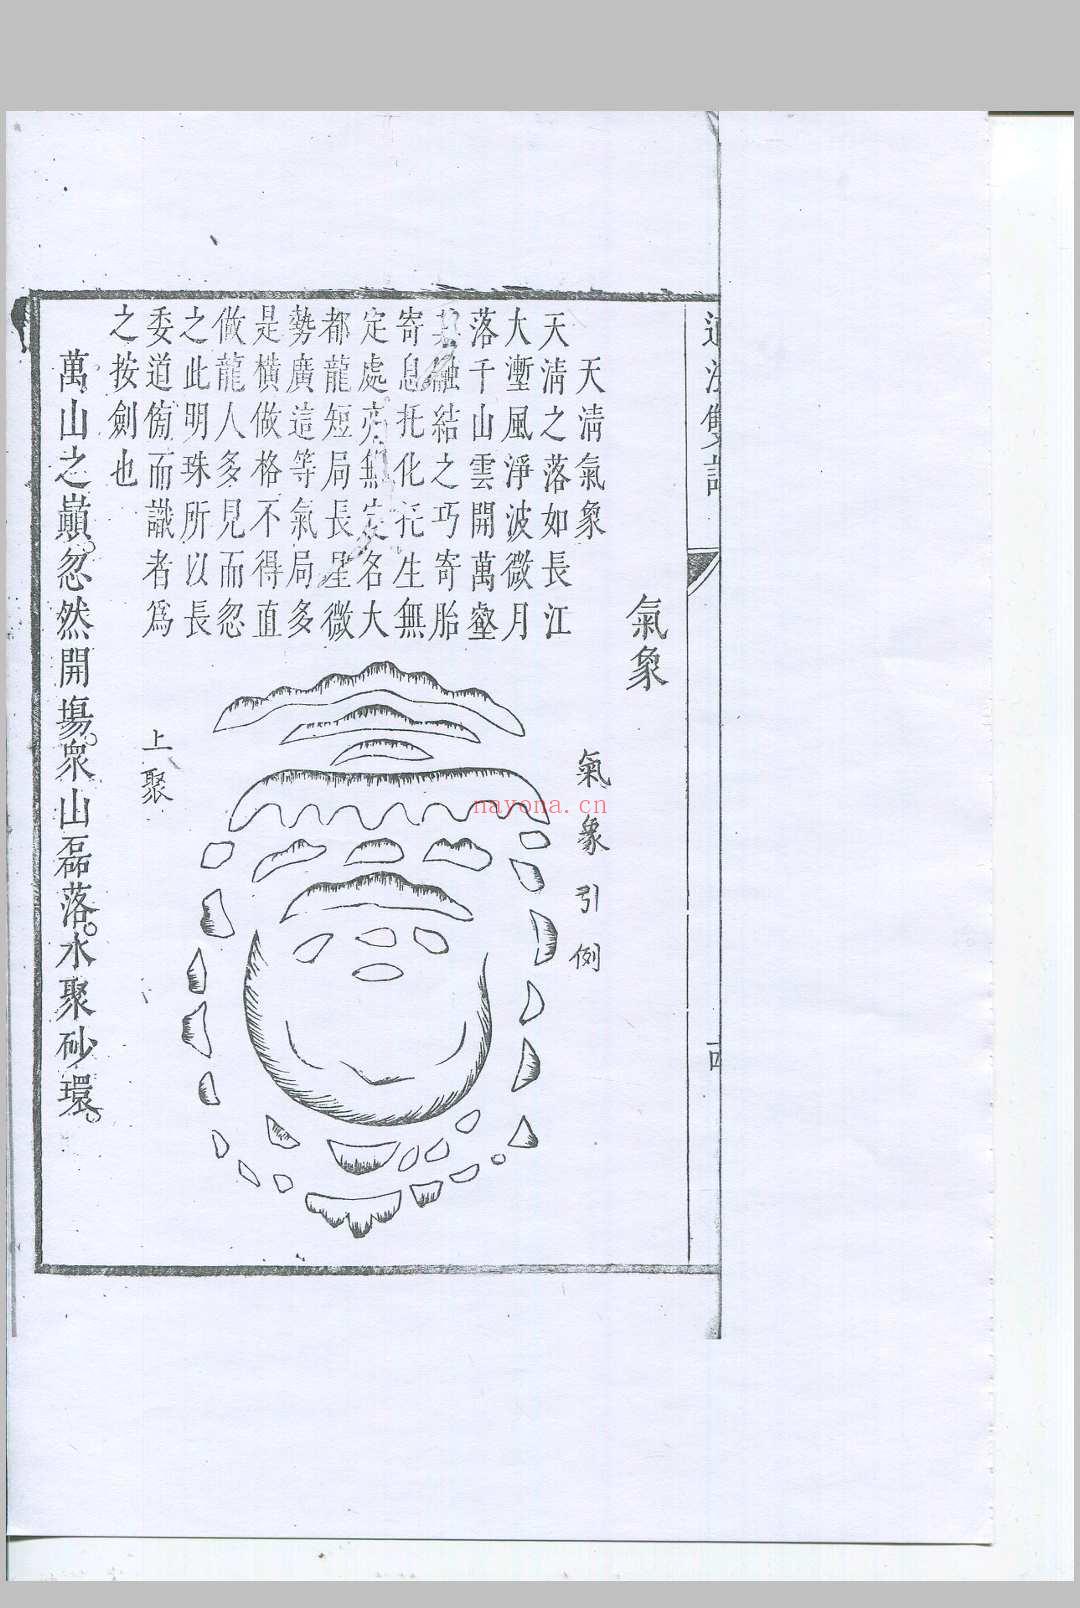 氣象
氣象引例
天淸氣象
天淸之落如長江
大壍風淨波微月
落千山雲開萬壑
融結之巧寄胎
寄息托化托生無
定處亦無定名大
都龍短局長星微
勢廣這等氣局多
是橫做格不得直
做龍人多見而忽
之此明珠所以長
委道傍而識者爲
之按劍也
上聚
萬山之巔。忽然開塲。衆山磊落。水聚砂環。
nayona.cn